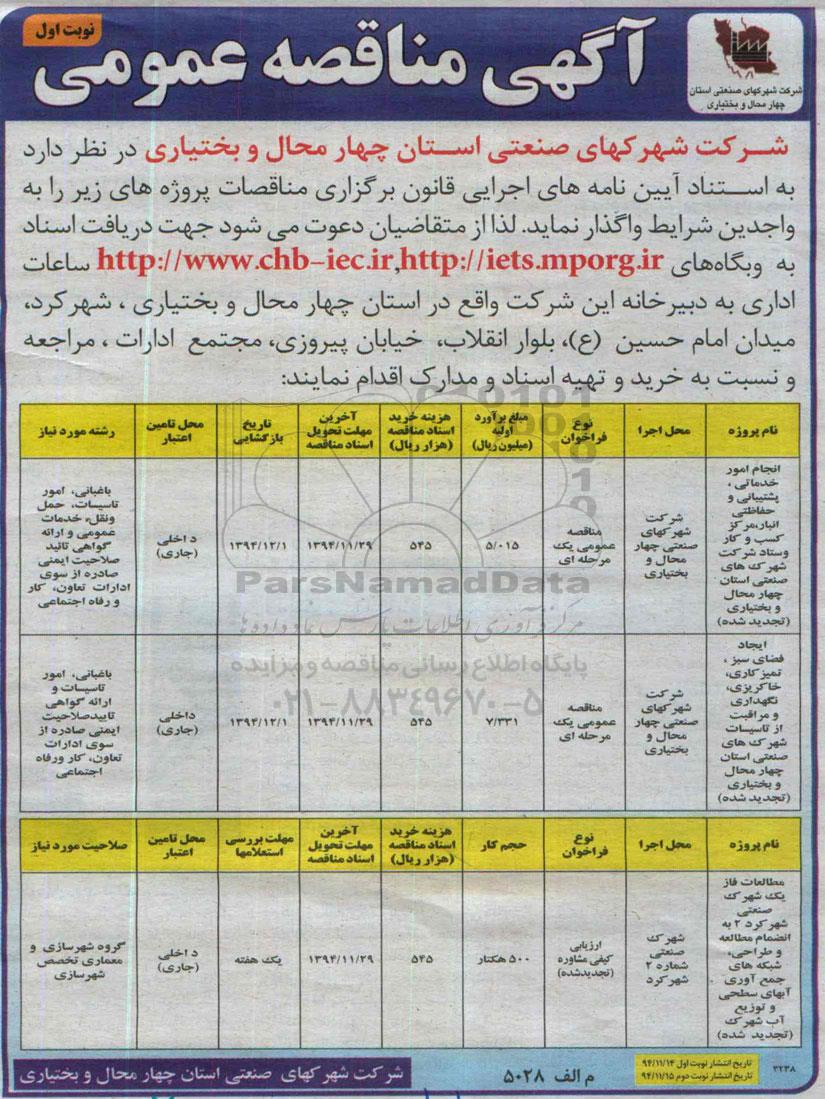 نوبت اول
آگهی مناقصه عمومی
شرکت شهرکهای صنعتی استان
چهار محال و بختیاری
شرکت شهرکهای صنعتی استان چهار محال و بختیاری در نظر دارد
به استناد آیین نامه های اجرایی قانون برگزاری مناقصات پروژه های زیر را به
واجدین شرایط واگذار نماید. لذا از متقاضیان دعوت می شود جهت دریافت اسناد
به وبگاه‌های http://www.chb-iec.ir,http://iets.mporg.ir ساعات
اداری به دبیرخانه این شرکت واقع در استان چهار محال و بختیاری ، شهرکرد،
میدان امام حسین (ع)، بلوار انقلاب، خیابان پیروزی، مجتمع ادارات ، مراجعه
و نسبت به خرید و تهیه اسناد و مدارک اقدام نمایند:
نام پروژه
محل اجرا
نوع
فراخوان
مبلغ برآورد
اولیه
(میلیون ریال)
هزینه خرید
اسناد مناقصه
(هزار ریال)
آخرین
مهلت تحویل
اسناد مناقصه
تاریخ
بازگشایی
محل تامین
اعتبار
رشته مورد نیاز
انجام امور
خدماتی ،
پشتیبانی و
حفاظتی
انبار،مرکز
کسب و کار
وستاد شرکت
شهرک های
صنعتی استان
چهار محال
و بختیاری
(تجدید شده)
شرکت
شهرکهای
صنعتی چهار
محال و
بختیاری
مناقصه
عمومی یک
مرحله ای
۵/۰۱۵
۵۴۵
۱۳۹۴/۱۱/۲۹
۱۳۹۴/۱۲/۱
داخلی
(جاری)
باغبانی، امور
تاسیسات، حمل
ونقل، خدمات
عمومی و ارائه
گواهی تائید
صلاحیت ایمنی
صادره از سوی
ادارات تعاون، کار
و رفاه اجتماعی
ایجاد
فضای سبز ،
تمیزکاری،
خاکریزی،
نگهداری
و مراقبت
از تاسیسات
شهرک های
صنعتی استان
چهار محال
و بختیاری
(تجدید شده)
شرکت
شهرکهای
صنعتی چهار
محال و
بختیاری
مناقصه
عمومی یک
مرحله ای
۷/۳۳۱
۵۴۵
۱۳۹۴/۱۱/۲۹
۱۳۹۴/۱۲/۱
داخلی
(جاری)
باغبانی، امور
تاسیسات و
ارائه گواهی
تاییدصلاحیت
ایمنی صادره از
سوی ادارات
تعاون، کار ورفاه
اجتماعی
ParsNamadData
مرکز فرآوری اطلاعات پارس نماد داده ها
پایگاه اطلاع رسانی مناقصه و مزایده
۰۲۱-۸۸۳۴۹۶۷۰-۵
نام پروژه
محل اجرا
نوع
فراخوان
حجم کار
هزینه خرید
اسناد مناقصه
(هزار ریال)
آخرین
مهلت تحویل
اسناد مناقصه
مهلت بررسی
استعلامها
محل تامین
اعتبار
صلاحیت مورد نیاز
مطالعات فاز
یک شهرک
صنعتی
شهرکرد ۲ به
انضمام مطالعه
و طراحی،
شبکه های
جمع آوری
آبهای سطحی
و توزیع
آب شهرک
(تجدید شده)
شهرک
صنعتی
شماره ۲
شهرکرد
ارزیابی
کیفی مشاوره
(تجدیدشده)
۵۰۰ هکتار
۵۴۵
۱۳۹۴/۱۱/۲۹
یک هفته
داخلی
(جاری)
گروه شهرسازی و
معماری تخصص
شهرسازی
۳۲۳۸
تاریخ انتشار نوبت اول ۹۴/۱۱/۱۴
تاریخ انتشار نوبت دوم ۹۴/۱۱/۱۵
م الف ۵۰۲۸
شرکت شهرکهای صنعتی استان چهار محال و بختیاری